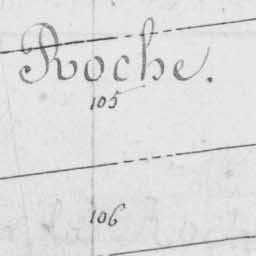 Roche.
105
106